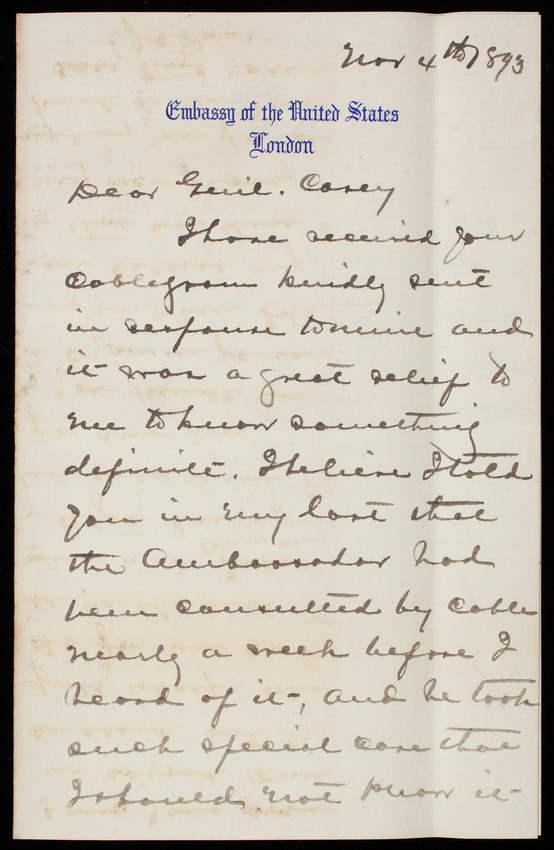 Nov 4th 1893
Embassy of the United States
London
Dear Genl. Casey
I have received your
Cablegram kindly sent
in response to mine and
it was a great relief to
me to know something
definite. I believe I told
you in my last that
the Ambassador had
been consulted by cable
nearly a week before I
heard of it, and he took
such special care that
I should not know it